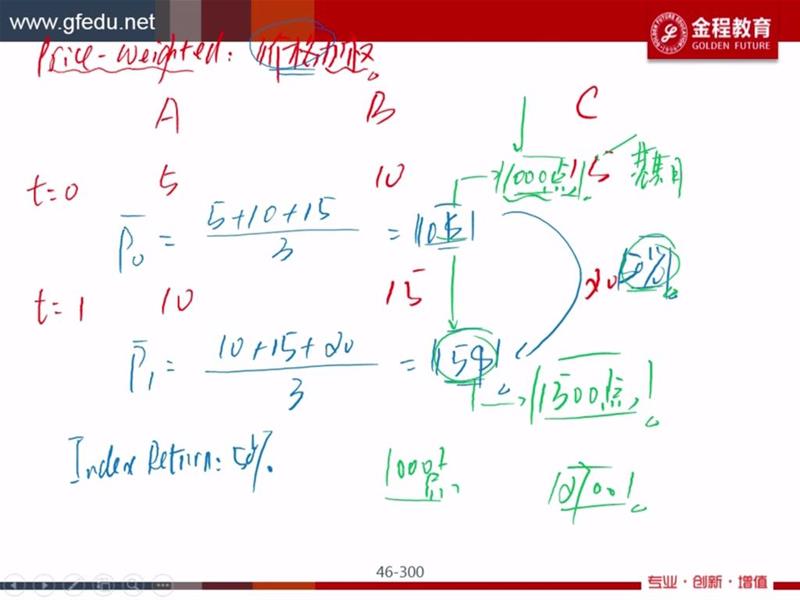 www.gfedu.net
金程教育
GOLDEN FUTURE
Price-Weighted: 价格加权。
A B C
t=0 5 10 15
1000点 基期
P̄₀ = 5+10+15 / 3 = 10
50%
t=1 10 15 20
P̄₁ = 10+15+20 / 3 = 15
1500点
Index Return: 50%.
1000点
46-300
专业·创新·增值